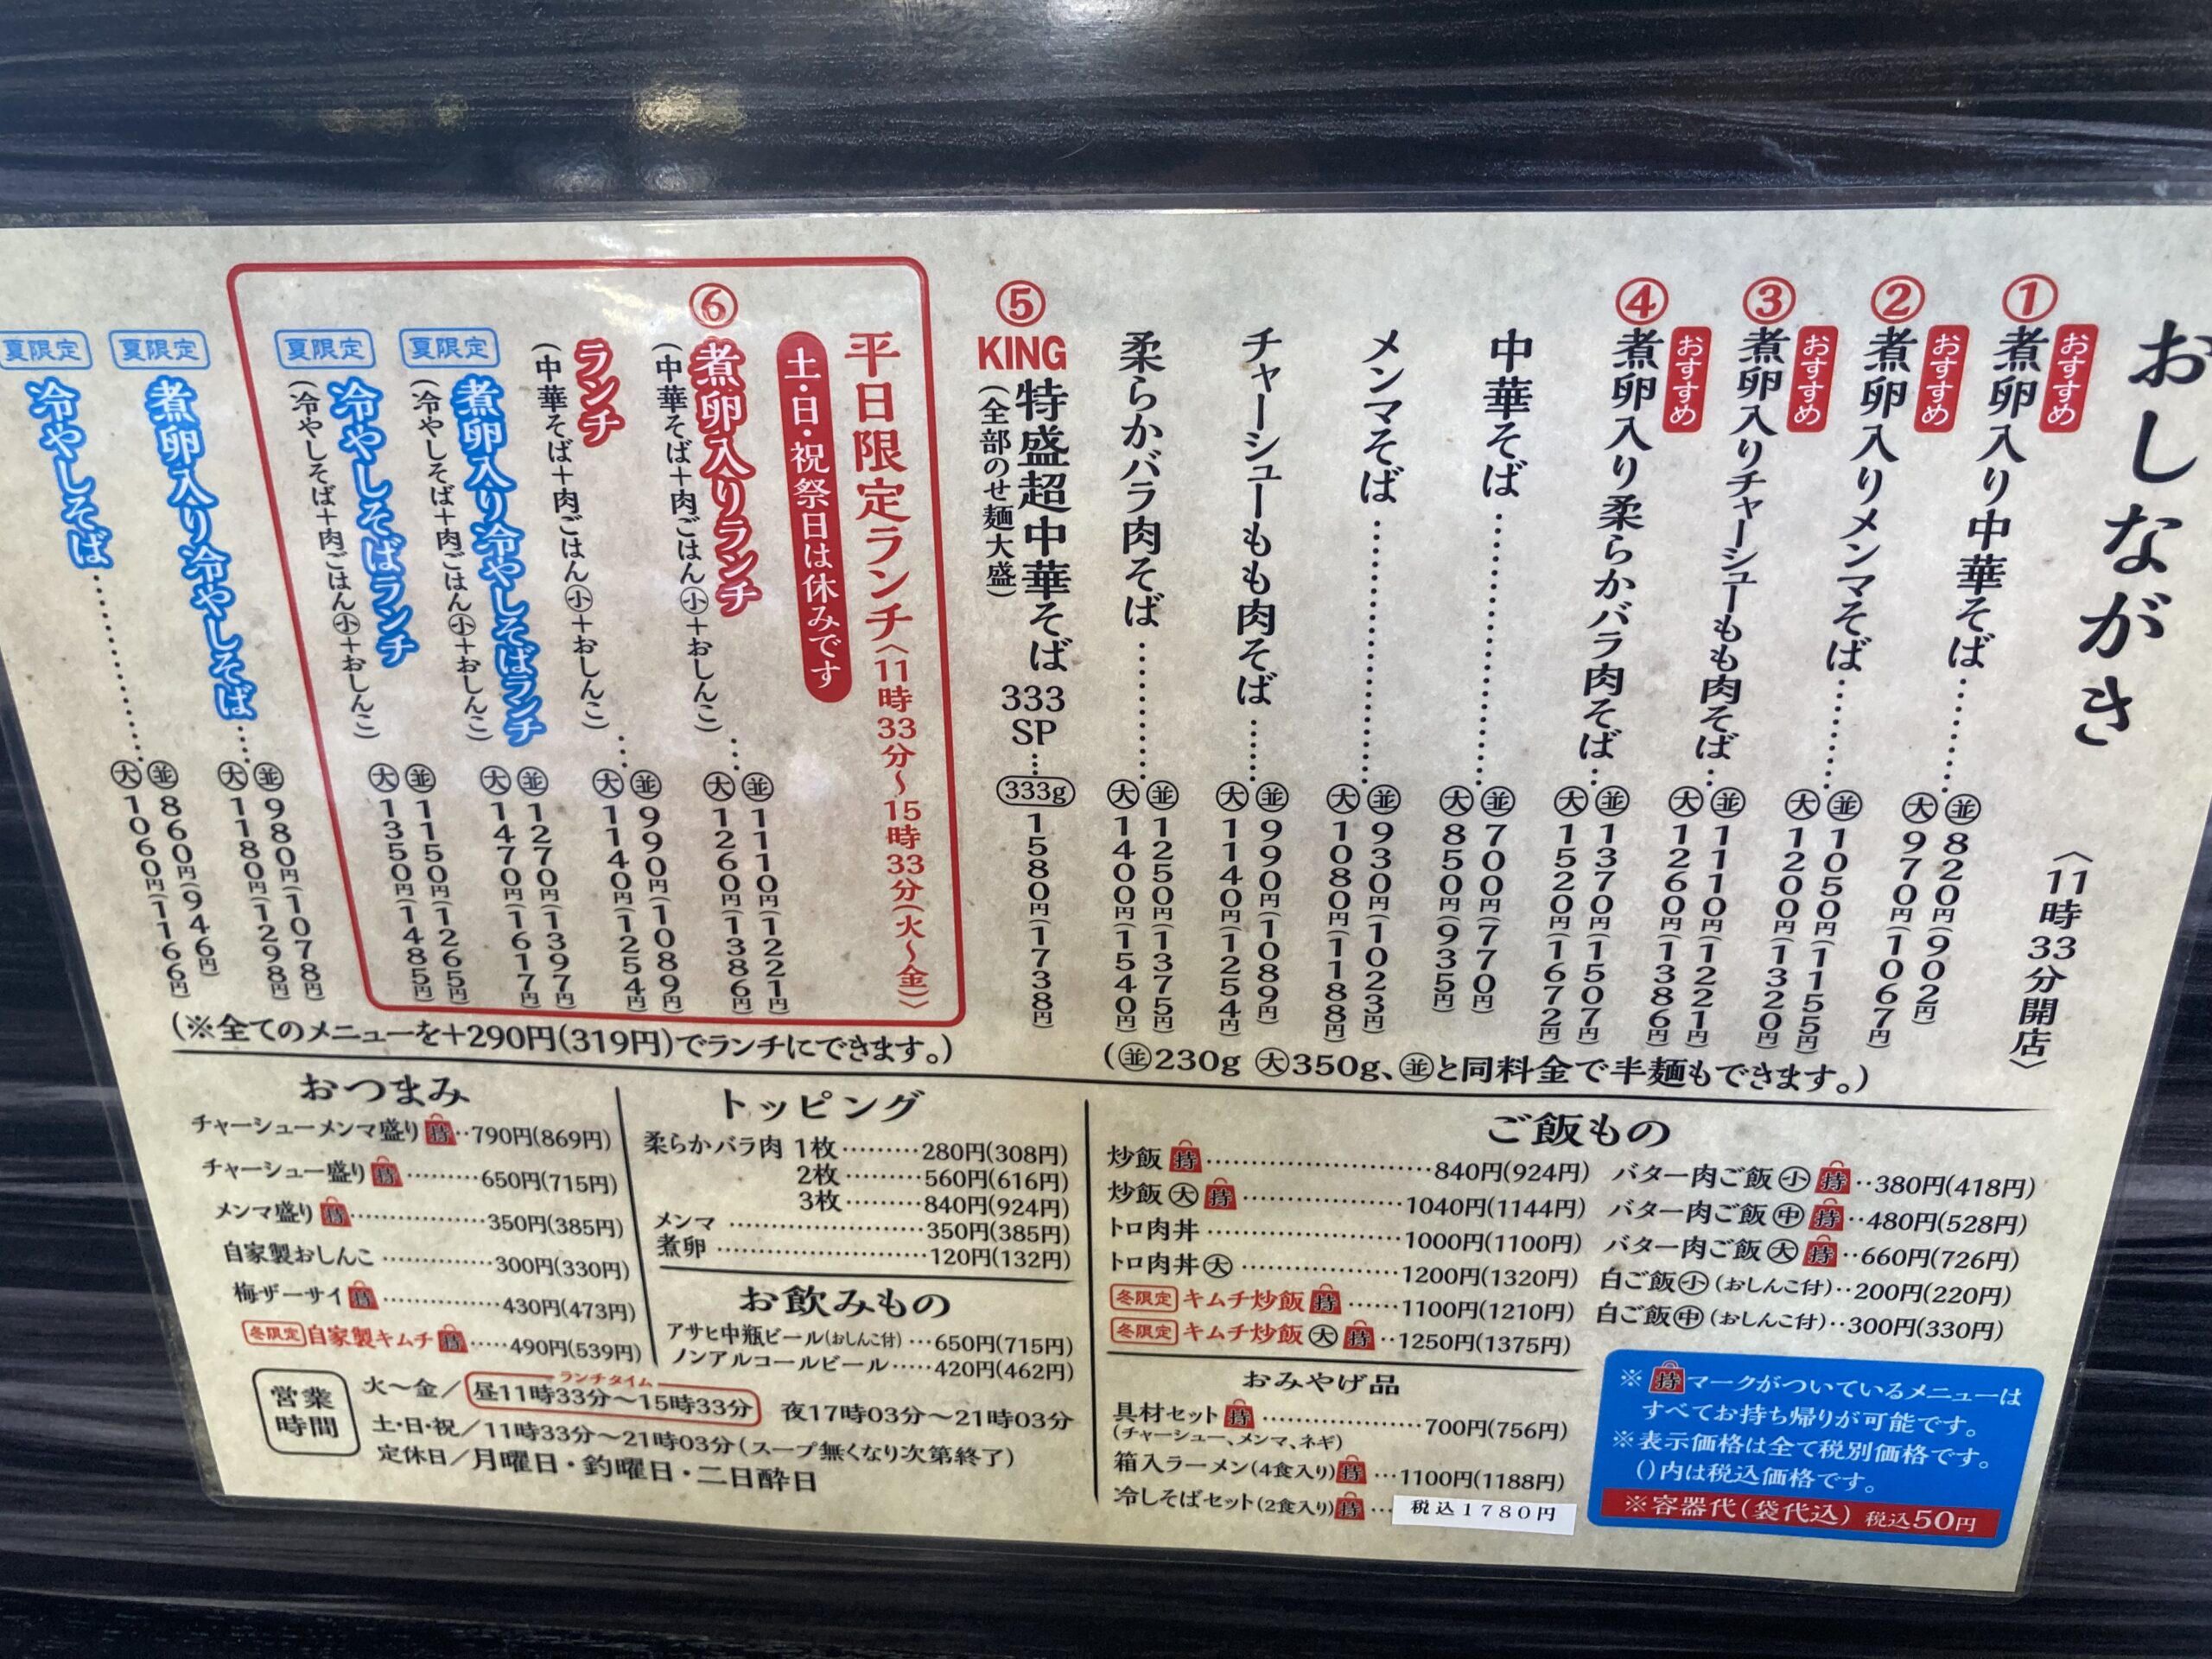 おしながき
〈11時33分開店〉
① おすすめ
煮卵入り中華そば……並820円(902円)
大970円(1067円)
② おすすめ
煮卵入りメンマそば……並1050円(1155円)
大1200円(1320円)
③ おすすめ
煮卵入りチャーシューもも肉そば…並1110円(1221円)
大1260円(1386円)
④ おすすめ
煮卵入り柔らかバラ肉そば…並1370円(1507円)
大1520円(1672円)
中華そば……並700円(770円)
大850円(935円)
メンマそば……並930円(1023円)
大1080円(1188円)
チャーシューもも肉そば……並990円(1089円)
大1140円(1254円)
柔らかバラ肉そば……並1250円(1375円)
大1400円(1540円)
⑤ KING 特盛超中華そば 333 SP…333g 1580円(1738円)
(全部のせ麺大盛)
(並230g 大350g、並と同料金で半麺もできます。)
平日限定ランチ〈11時33分〜15時33分(火〜金)〉
土・日・祝祭日は休みです
⑥ 煮卵入りランチ
(中華そば+肉ごはん小+おしんこ)…並1110円(1221円)
大1260円(1386円)
ランチ
(中華そば+肉ごはん小+おしんこ)…並990円(1089円)
大1140円(1254円)
夏限定 煮卵入り冷やしそばランチ 並1270円(1397円)
(冷やしそば+肉ごはん小+おしんこ) 大1470円(1617円)
夏限定 冷やしそばランチ 並1150円(1265円)
(冷やしそば+肉ごはん小+おしんこ) 大1350円(1485円)
夏限定 煮卵入り冷やしそば…並980円(1078円)
大1180円(1298円)
夏限定 冷やしそば……並860円(946円)
大1060円(1166円)
(※全てのメニューを+290円(319円)でランチにできます。)
おつまみ
チャーシューメンマ盛り 持‥790円(869円)
チャーシュー盛り 持………650円(715円)
メンマ盛り 持……………350円(385円)
自家製おしんこ……………300円(330円)
梅ザーサイ 持……………430円(473円)
冬限定 自家製キムチ 持……490円(539円)
トッピング
柔らかバラ肉 1枚………280円(308円)
2枚………560円(616円)
3枚………840円(924円)
メンマ……………350円(385円)
煮卵……………120円(132円)
お飲みもの
アサヒ中瓶ビール(おしんこ付)…650円(715円)
ノンアルコールビール……420円(462円)
ご飯もの
炒飯 持……………840円(924円)
炒飯 大 持……………1040円(1144円)
トロ肉丼……………1000円(1100円)
トロ肉丼 大……………1200円(1320円)
冬限定 キムチ炒飯 持……1100円(1210円)
冬限定 キムチ炒飯 大 持‥1250円(1375円)
バター肉ご飯 小 持‥380円(418円)
バター肉ご飯 中 持‥480円(528円)
バター肉ご飯 大 持‥660円(726円)
白ご飯 小(おしんこ付)‥200円(220円)
白ご飯 中(おしんこ付)‥300円(330円)
おみやげ品
具材セット 持……………700円(756円)
(チャーシュー、メンマ、ネギ)
箱入ラーメン(4食入り) 持…1100円(1188円)
冷しそばセット(2食入り) 持… 税込1780円
※持マークがついているメニューは
すべてお持ち帰りが可能です。
※表示価格は全て税別価格です。
()内は税込価格です。
※容器代(袋代込) 税込50円
営業時間
ランチタイム
火〜金／昼11時33分〜15時33分 夜17時03分〜21時03分
土・日・祝／11時33分〜21時03分(スープ無くなり次第終了)
定休日／月曜日・釣曜日・二日酔日